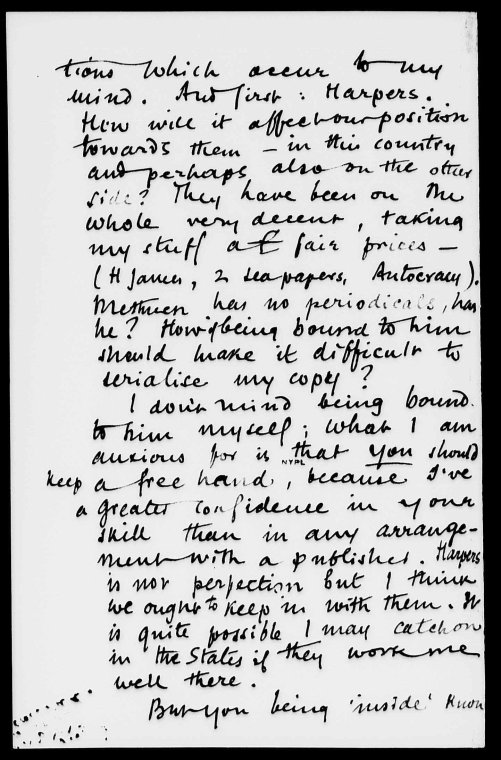 tions which occur to my
mind. And first: Harpers.
How will it affect our position
towards them – in this country
and perhaps also on the other
side? They have been on the
whole very decent, taking
my stuff at fair prices –
(H James, 2 sea papers, Autocracy).
Methuen has no periodicals, has
he? How if being bound to him
should make it difficult to
serialise my copy?
I don't mind being bound
to him myself; what I am
anxious for is that you should
NYPL
keep a free hand, because I've
a greater confidence in your
skill than in any arrange-
ment with a publisher. Harpers
is not perfection but I think
we ought to keep in with them. It
is quite possible I may catch on
in the States if they work me
well there.
But you being 'inside' know